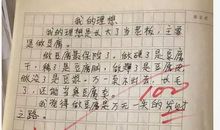 我的理想
我的理想是长大了当老板，主要
是做豆腐。
做豆腐最保险了，做硬了是豆腐
干，稀了是豆腐脑，做薄了是豆腐
皮，做没了是豆浆，万一卖不出去，长毛
了，还能当臭豆腐卖。
我觉得做豆腐是万无一失的发财
之路。
100